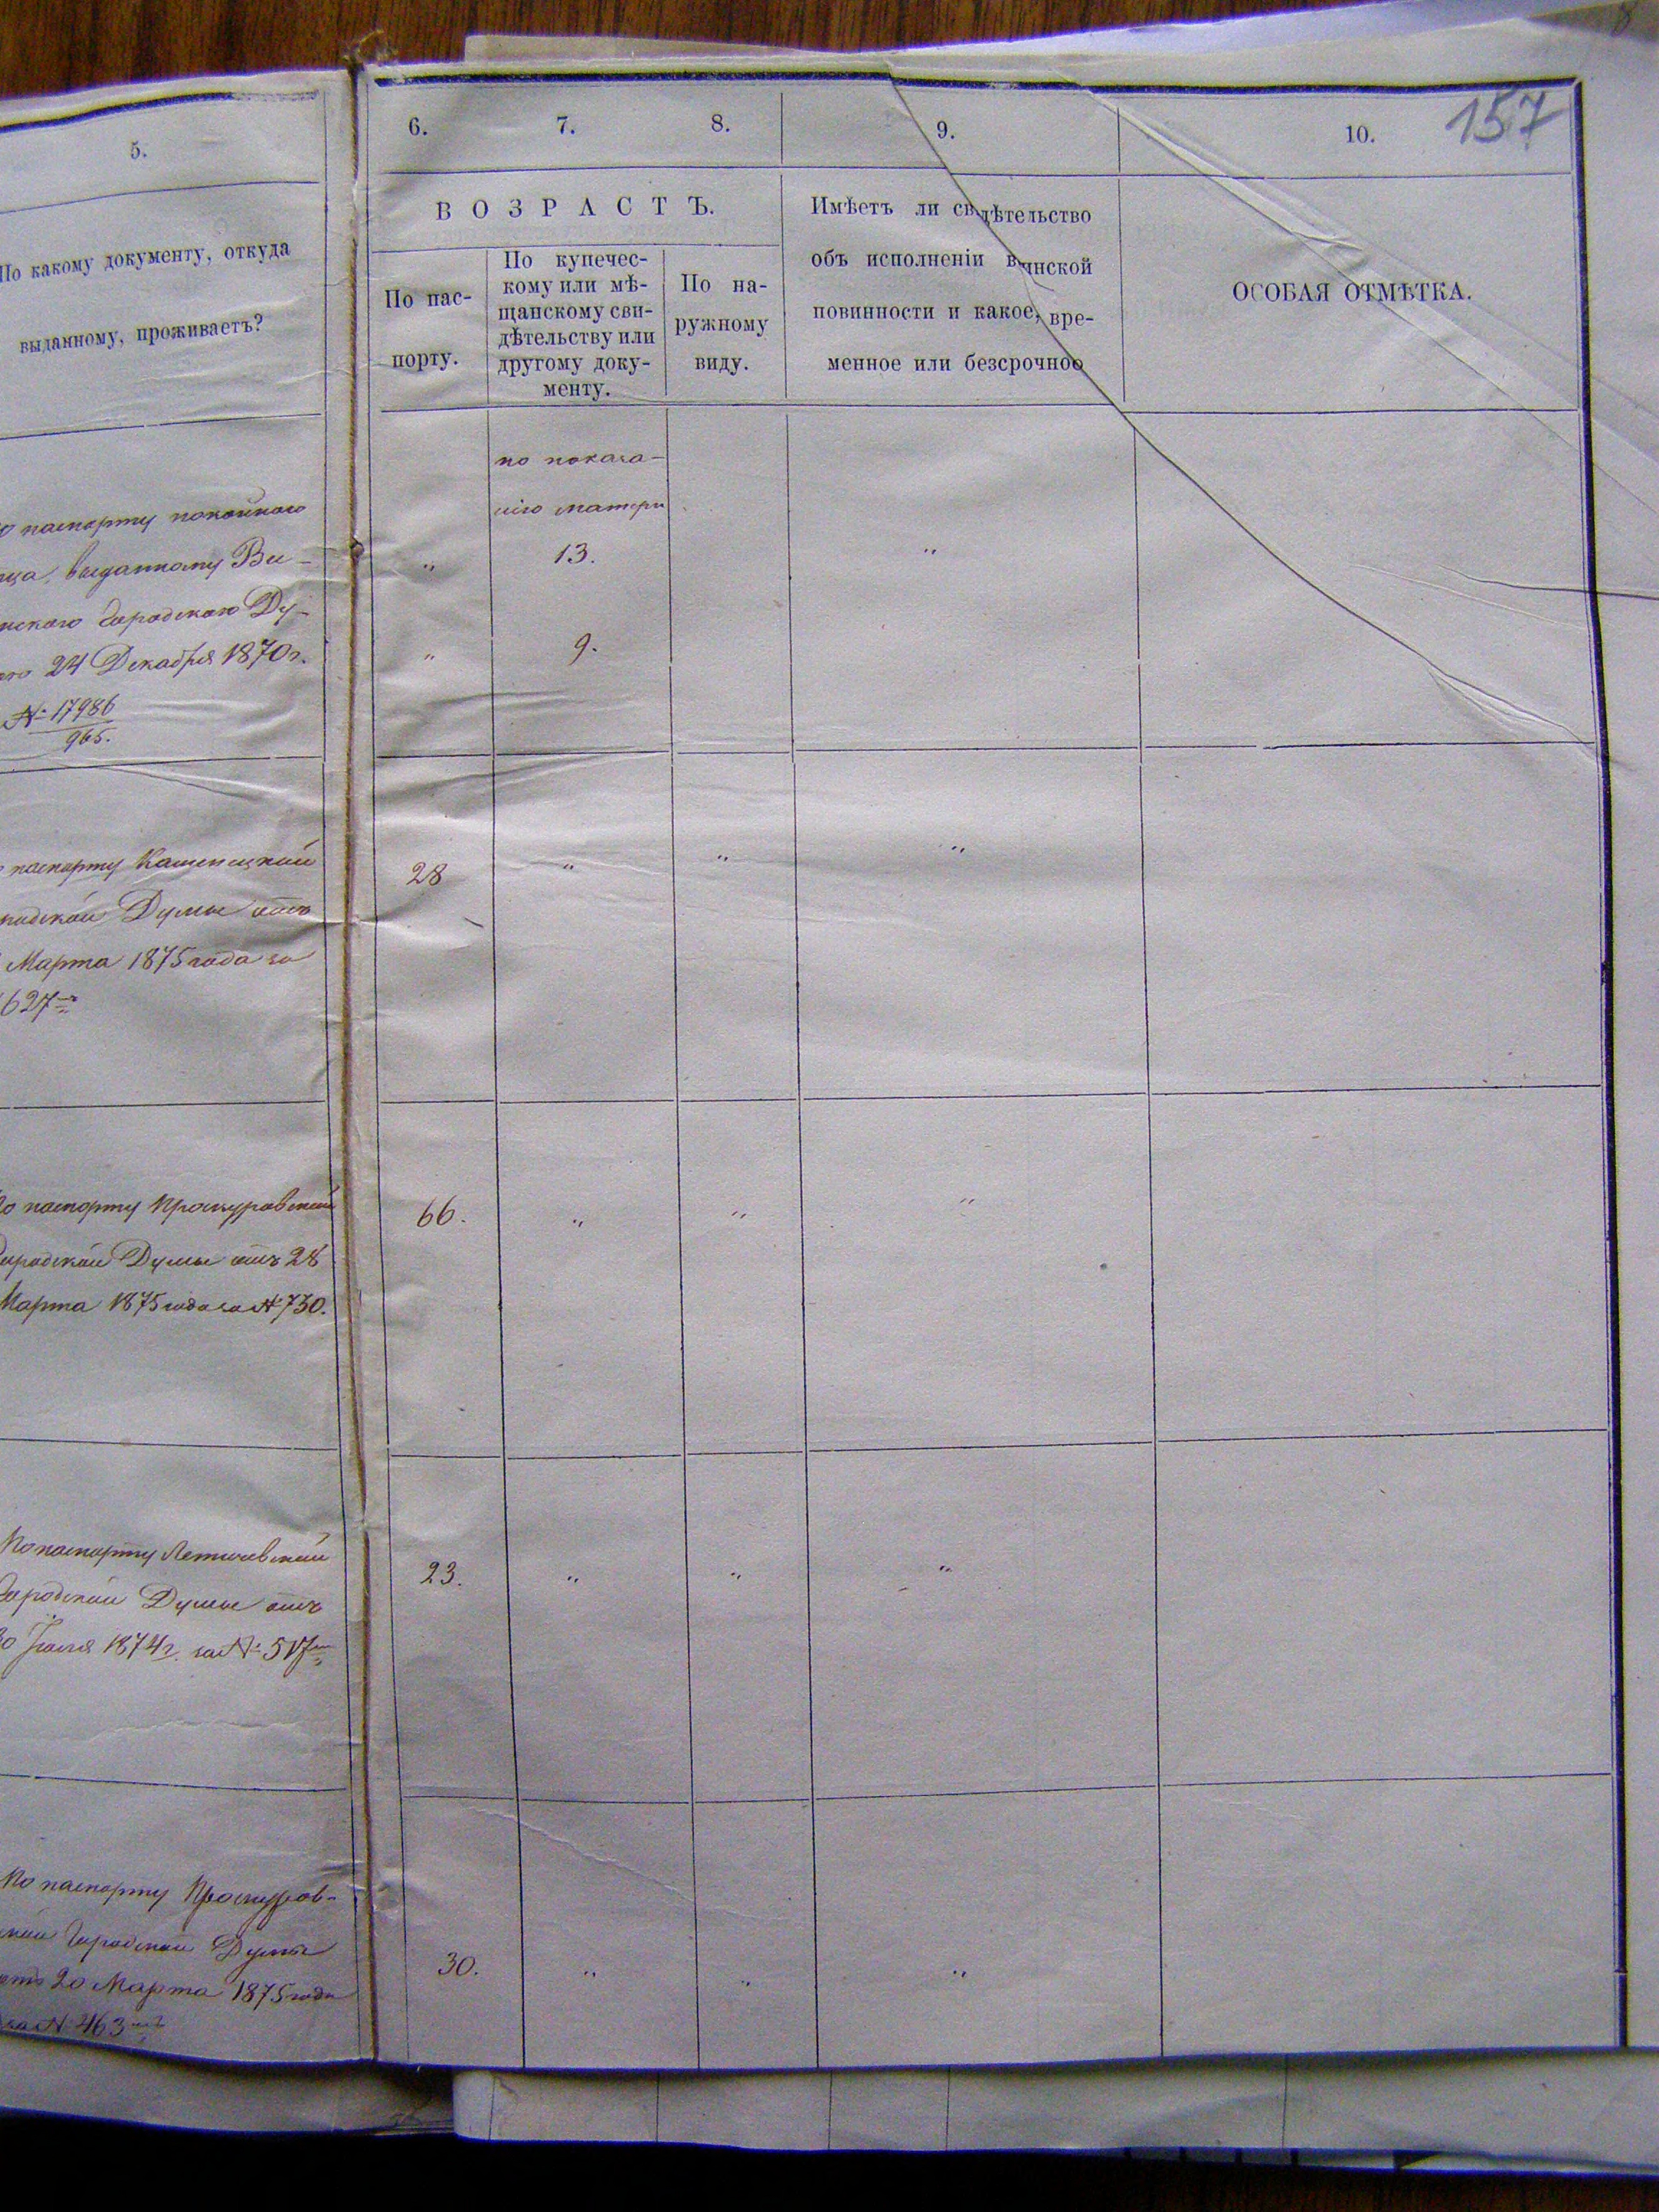 157
5.
6.
7.
8.
9.
10.
По какому документу, откуда
выданному, проживаетъ?
ВОЗРАСТЪ.
По пас-
порту.
По купечес-
кому или мѣ-
щанскому сви-
дѣтельству или
другому доку-
менту.
По на-
ружному
виду.
Имѣетъ ли свидѣтельство
объ исполненіи воинской
повинности и какое, вре-
менное или безсрочное
ОСОБАЯ ОТМѢТКА.
паспорту покойнаго
выданному Ви-
Городскою Ду-
24 Декабря 1870 г.
№ 17986
965.
по показа-
нію матери
„ 13. „
„ 9.
паспорту Каменецкой
Думы отъ
Марта 1875 года за
627
28 „ „ „
По паспорту Проскуровской
Городской Думы отъ 28
Марта 1875 года за № 730.
66. „ „ „
По паспорту Летичевской
Городской Думы отъ
30 Іюля 1874 г. за № 517
23. „ „ „
По паспорту Проскуров-
ской Городской Думы
отъ 20 Марта 1875 года
за № 463
30. „ „ „